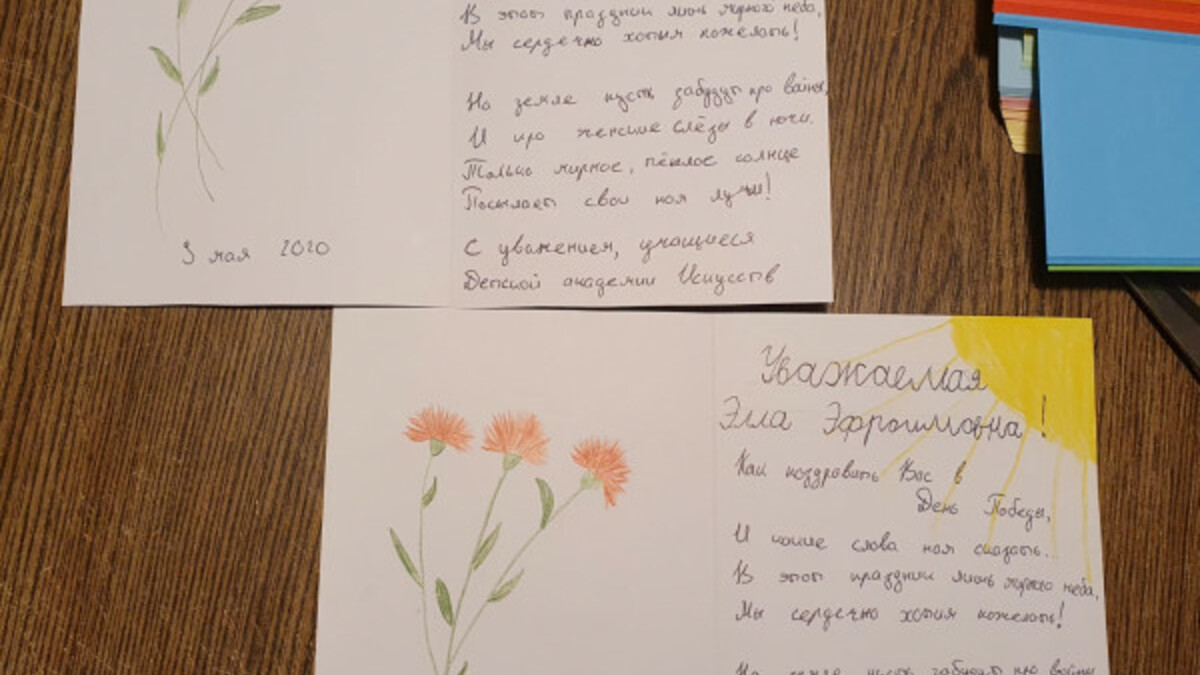 В этот праздник лишь мирного неба,
Мы сердечно хотим пожелать!
На земле пусть забудут про войны,
И про женские слёзы в ночи.
Только мирное, тёплое солнце
Посылает свои нам лучи!
С уважением, учащиеся
Детской академии Искусств
9 мая 2020
Уважаемая
Элла Эфроимовна!
Как поздравить Вас в
День Победы,
И какие слова нам сказать.
В этот праздник лишь мирного неба,
Мы сердечно хотим пожелать!
На земле пусть забудут про войны